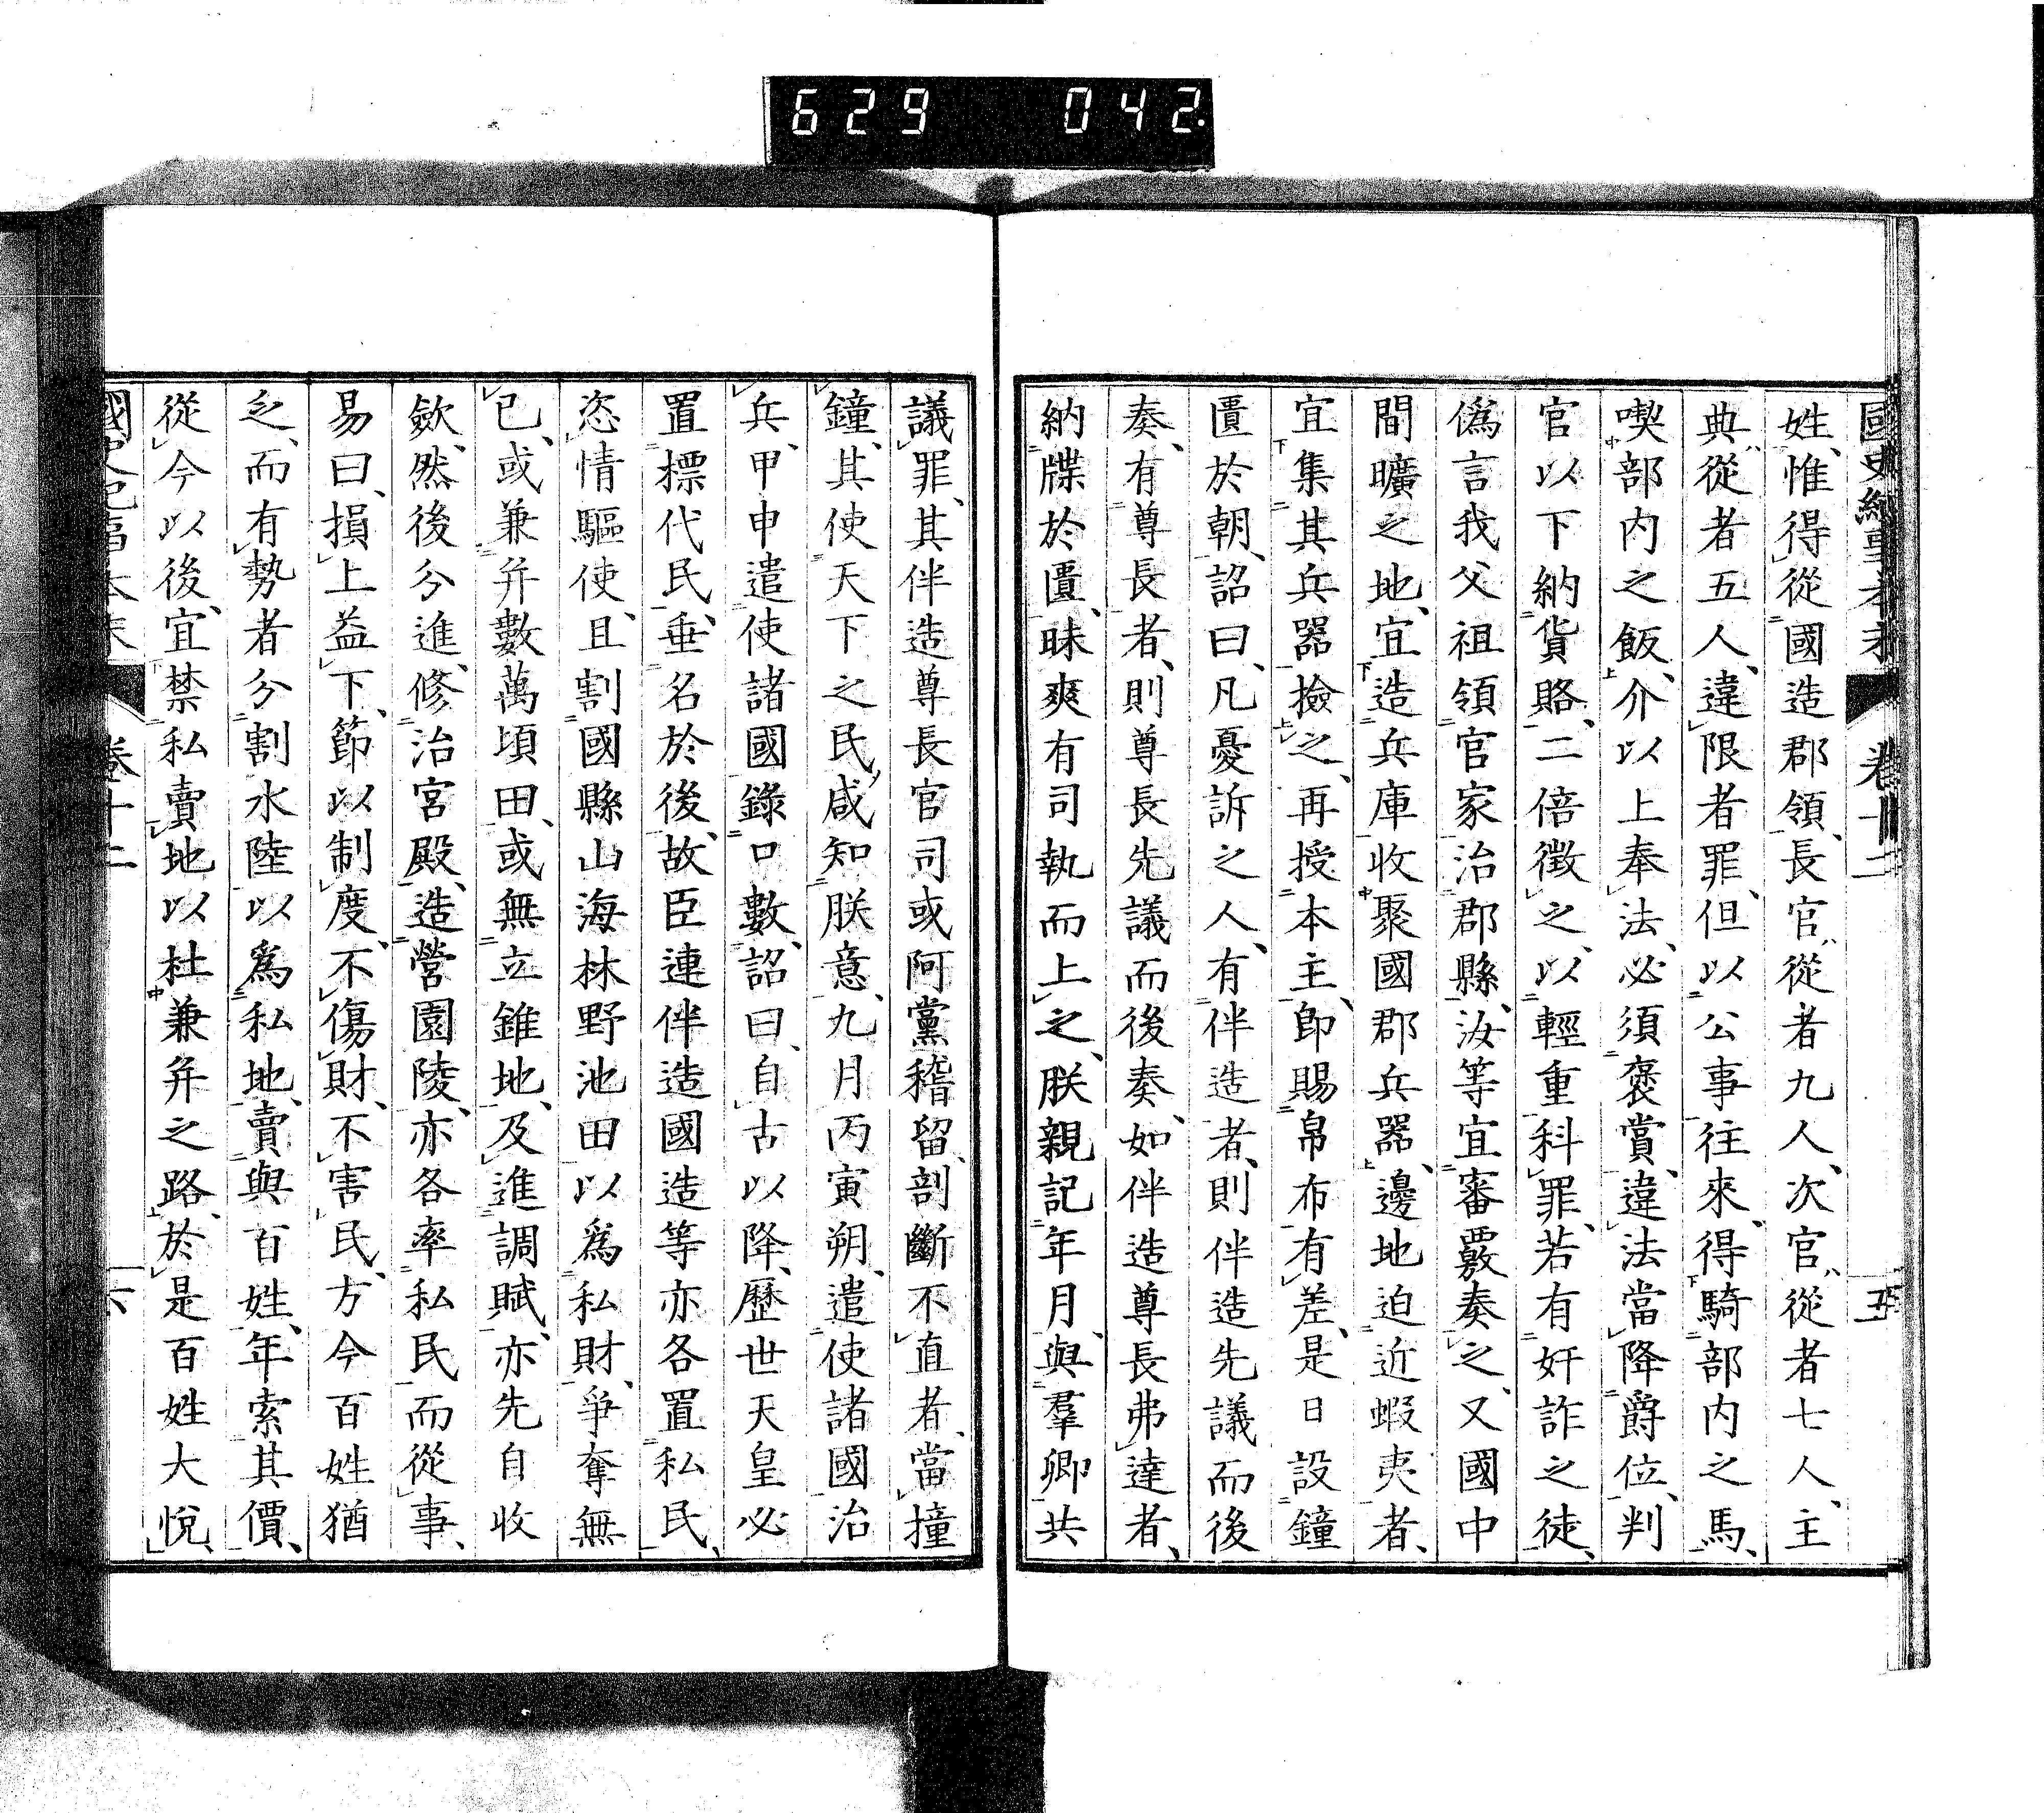 629 042.
國史紀事本末 卷十二 五
姓、惟得從國造郡領、長官從者九人、次官從者七人、主
典從者五人、違限者罪、但以公事往來、得騎部内之馬、
喫部内之飯、介以上奉法、必須褒賞、違法當降爵位、判
官以下納貨賂、二倍徵之、以輕重科罪、若有奸詐之徒、
僞言我父祖領官家治郡縣、汝等宜審覈奏之、又國中
間曠之地、宜造兵庫收聚國郡兵器、邊地迫近蝦夷者、
宜集其兵器撿之、再授本主、卽賜帛布有差、是日設鐘
匱於朝、詔曰、凡憂訴之人、有伴造者、則伴造先議而後
奏、有尊長者、則尊長先議而後奏、如伴造尊長弗達者、
納牒於匱、昧爽有司執而上之、朕親記年月、與羣卿共
議罪、其伴造尊長官司或阿黨稽留、剖斷不直者、當撞
鐘、其使天下之民、咸知朕意、九月丙寅朔、遣使諸國治
兵、甲申遣使諸國錄口數、詔曰、自古以降、歷世天皇必
置標代民、垂名於後、故臣連伴造國造等亦各置私民、
恣情驅使、且割國縣山海林野池田以爲私財、爭奪無
已、或兼并數萬頃田、或無立錐地、及進調賦、亦先自收
斂、然後分進、修治宮殿、造營園陵、亦各率私民而從事、
易曰、損上益下、節以制度、不傷財、不害民、方今百姓猶
乏、而有勢者分割水陸以爲私地、賣與百姓、年索其價、
從今以後、宜禁私賣地以杜兼并之路、於是百姓大悅、
國史紀事本末 卷十二 六